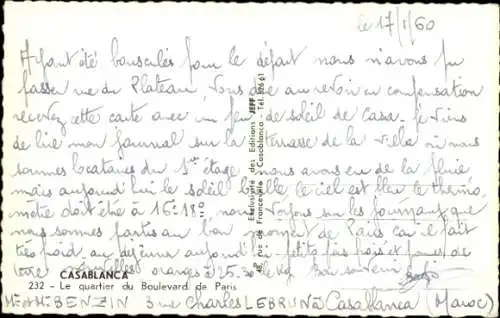 le 17/1/60
Ayant été bousculés pour le départ nous n'avons pu
passer rue du Plateau, Vous dire au revoir en compensation
recevez cette carte avec un peu de soleil de Casa. Je viens
de lire mon journal sur la terrasse de la villa où nous
sommes locataires du 1er étage, nous avons eu de la pluie
mais aujourd'hui le soleil brille le ciel est bleu le thermo
mètre doit être à 16-18° nous voyons sur les journaux que
nous sommes partis au bon moment de Paris car il fait
très froid, au déjeuner aujourd'hui petits pois frais et pommes de
terre nouvelles oranges à 25.30 le kg Bon souvenir
CASABLANCA
232 - Le quartier du Boulevard de Paris
Mr et Mme BENZIN 3 rue Charles LEBRUN à Casablanca (Maroc)
Exclusivité des Editions JEFF
rue de Franceville - Casablanca - Tél.